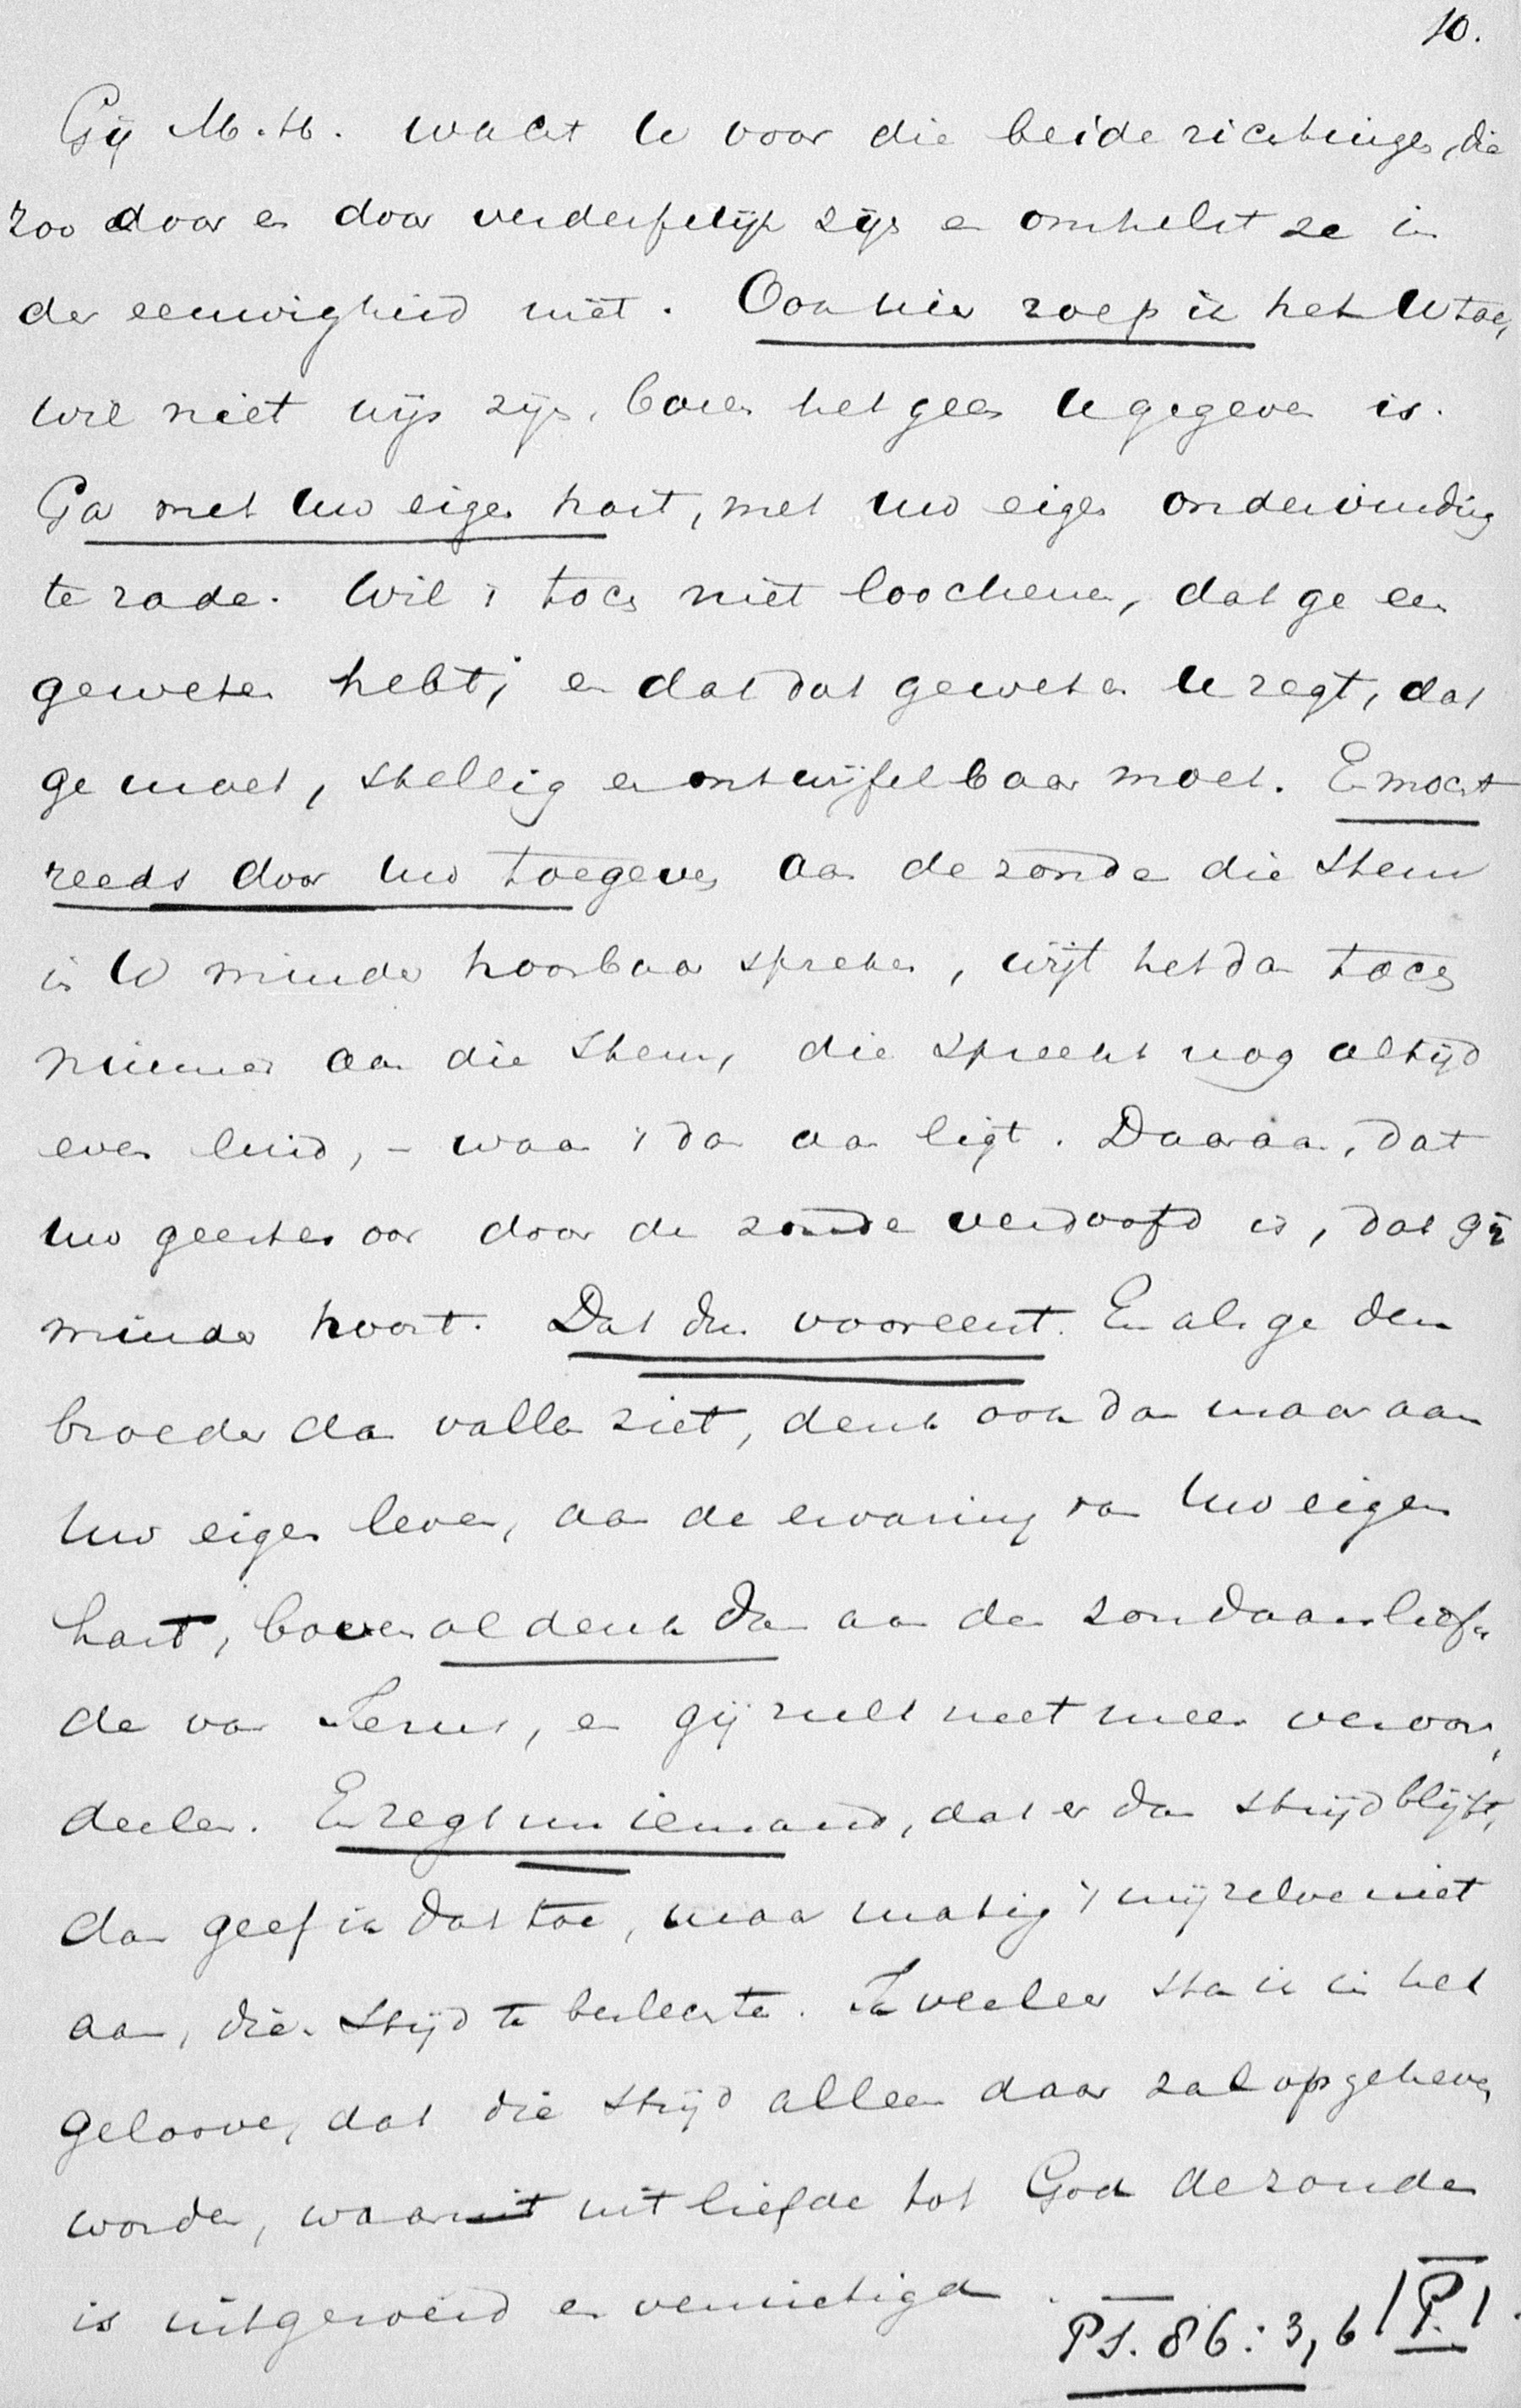 10.
Gij M.H. wacht U voor die beide richtingen, die
zoo door en door verderfelijk zijn en omhelst ze in
der eeuwigheid niet. Ook hier roep ik het U toe,
wil niet wijs zijn, boven hetgeen U gegeven is.
Ga met Uw eigen hart, met uw eigen ondervinding
te rade. Wil 't toch niet loochenen, dat ge een
geweten hebt; en dat dat geweten U zegt, dat
ge moet, stellig en ontwijfelbaar moet. En mocht
reeds door Uw toegeven aan de zonde die stem
in U minder hoorbaar spreken, wijt het dan toch
nimmer aan die stem, die spreekt nog altijd
even luid, – waar 't dan aan ligt. Daaraan, dat
Uw geestes oor door de zonde verdoofd is, dat gij
minder hoort. Dat dus vooreerst. En als ge den
broeder dan vallen ziet, denk ook dan maar aan
Uw eigen leven, aan de ervaring van Uw eigen
hart, bovenal denk dan aan den zondaarslief„
de van Jezus, en gij zult niet meer veroor„
deelen. En zegt nu iemand, dat er dan strijd blijft,
dan geef ik dat toe, maar matig 't mijzelve niet
aan, dien strijd te beslechten. Ik veeleer sta ik in het
geloove, dat die strijd alleen daar zal opgeheven
worden, waar uit uit liefde tot God de zonde
is uitgeroeid en vernietigd.
Ps. 86:3, 6 | P. |.